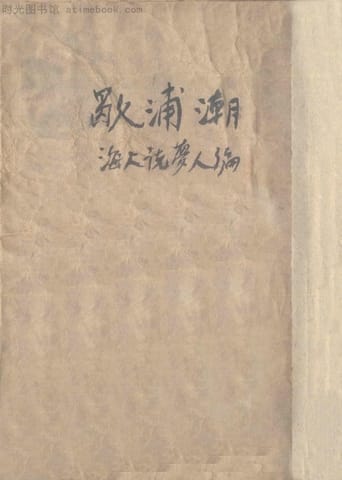 时光图书馆 atimebook.com
歇浦潮
海上说梦人编